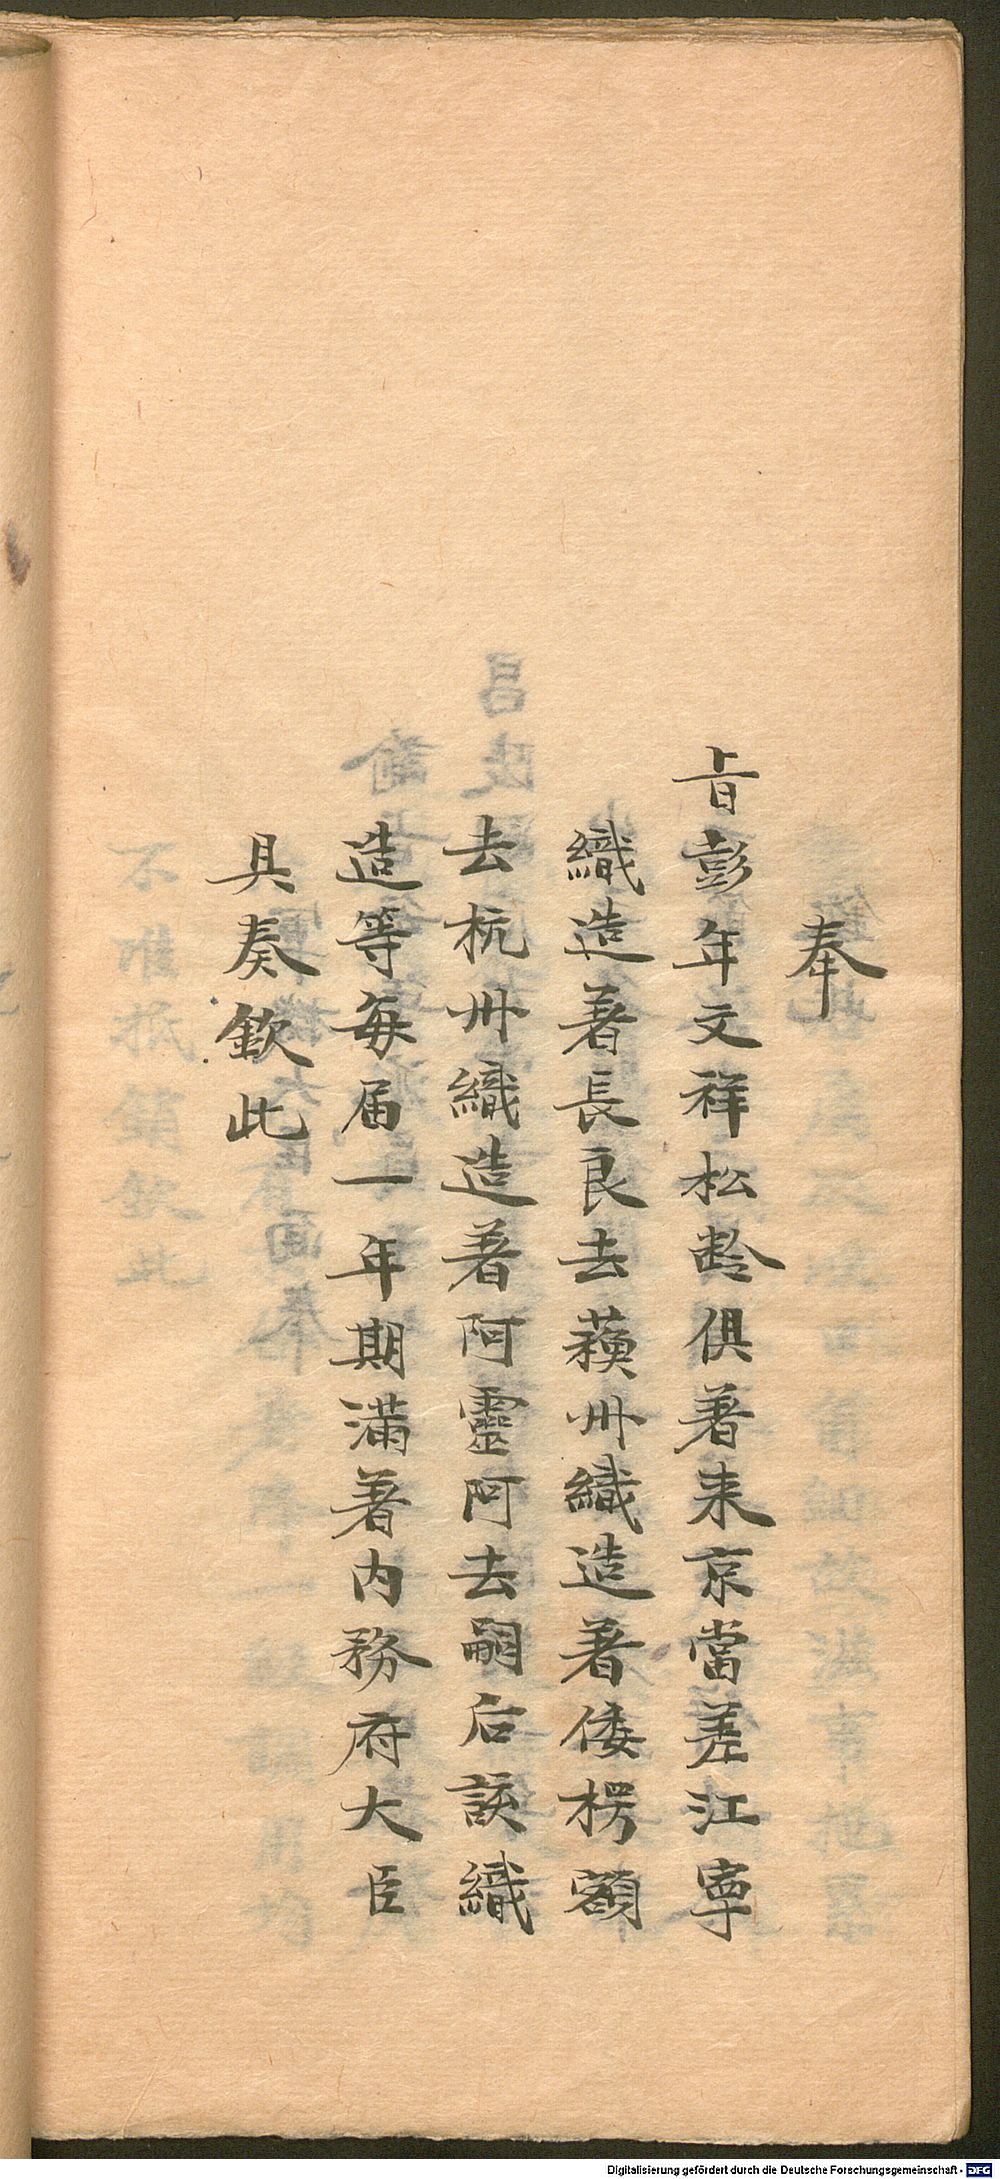 奉
旨彭年文祥松齡俱著来京當差江寧
織造著長良去蘓州織造著倭楞額
去杭州織造著阿靈阿去嗣后該織
造等每届一年期滿著内務府大臣
具奏欽此
Digitalisierung gefördert durch die Deutsche Forschungsgemeinschaft - DFG